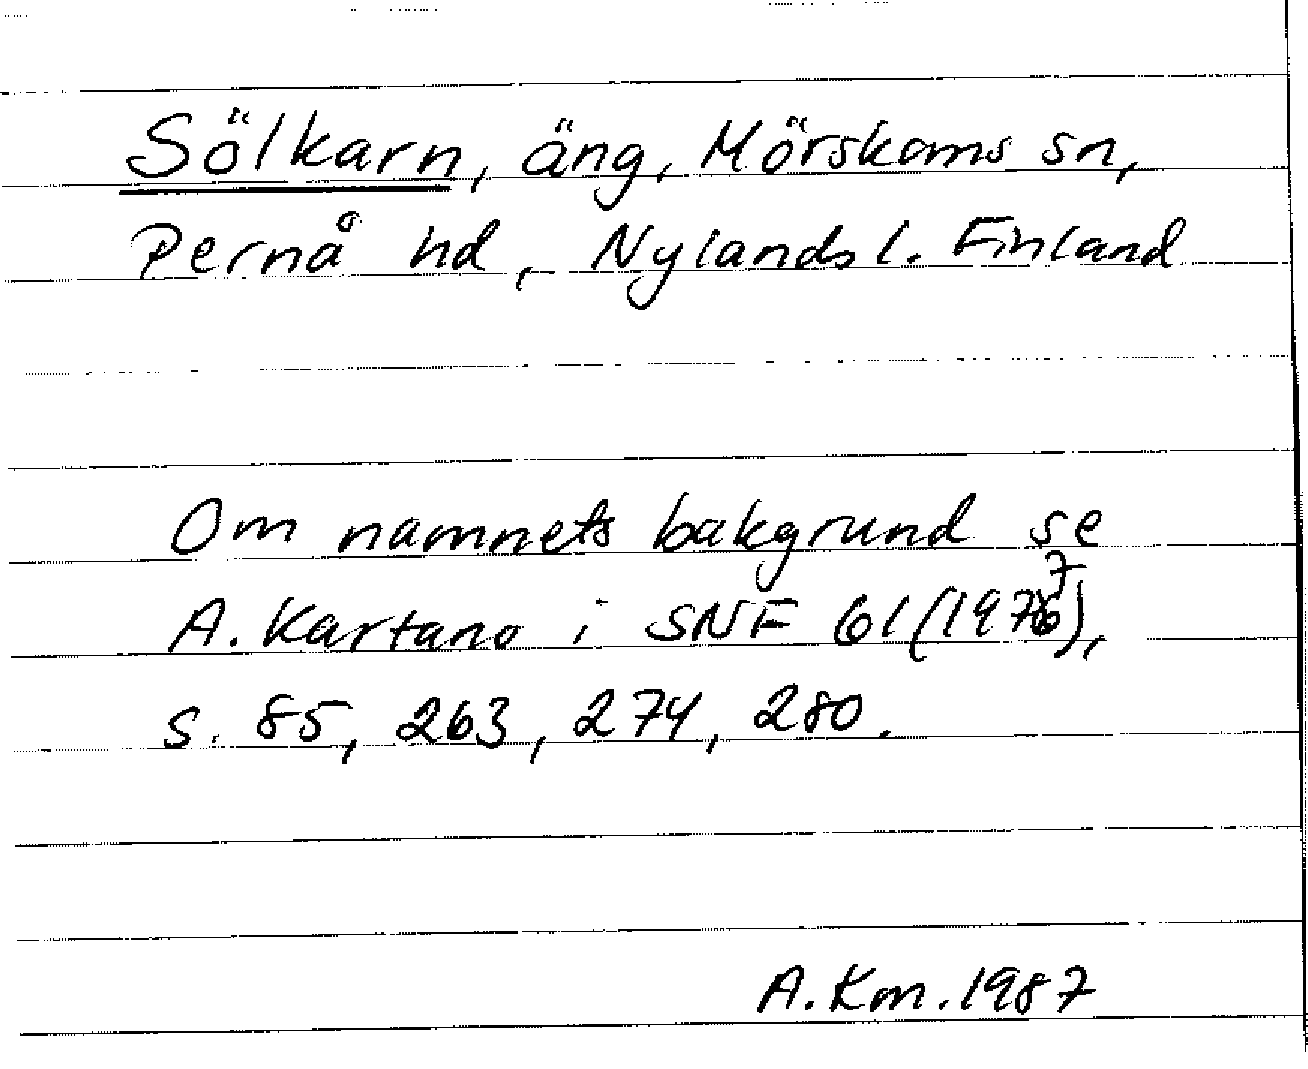 Sölkarn, äng, Mörskoms sn,
Pernå hd, Nylands l. Finland
Om namnets bakgrund se
A. Kartano i SNF 61 (1977),
s. 85, 263, 274, 280.
A. Km. 1987